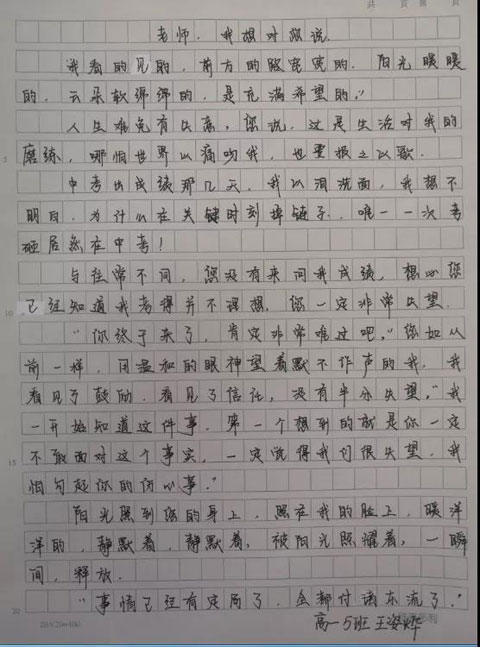 共 页 第 页
老师，我想对您说
我看的见的，前方的路宽宽的，阳光暖暖
的，云朵软绵绵的，是充满希望的。”
人生难免有失意，您说，这是生活对我的
磨练，哪怕世界以痛吻我，也要报之以歌。
中考出成绩那几天，我以泪洗面，我想不
明白，为什么在关键时刻掉链子，唯一一次考
砸居然在中考！
与往常不同，您没有来问我成绩，想必您
已经知道我考得并不理想，您一定非常失望。
“你终于来了，肯定非常难过吧。”您如从
前一样，用温和的眼神望着默不作声的我，我
看见了鼓励，看见了信任，没有半分失望，“我
一开始知道这件事，第一个想到的就是你一定
不敢面对这个事实，一定觉得我们很失望，我
怕勾起你的伤心事。”
阳光照到您的身上，照在我的脸上，暖洋
洋的，静默着，静默着，被阳光照耀着，一瞬
间，释放。
“事情已经有定局了，全都付诸东流了。”
高一5班 王姿烨
5
10
15
20